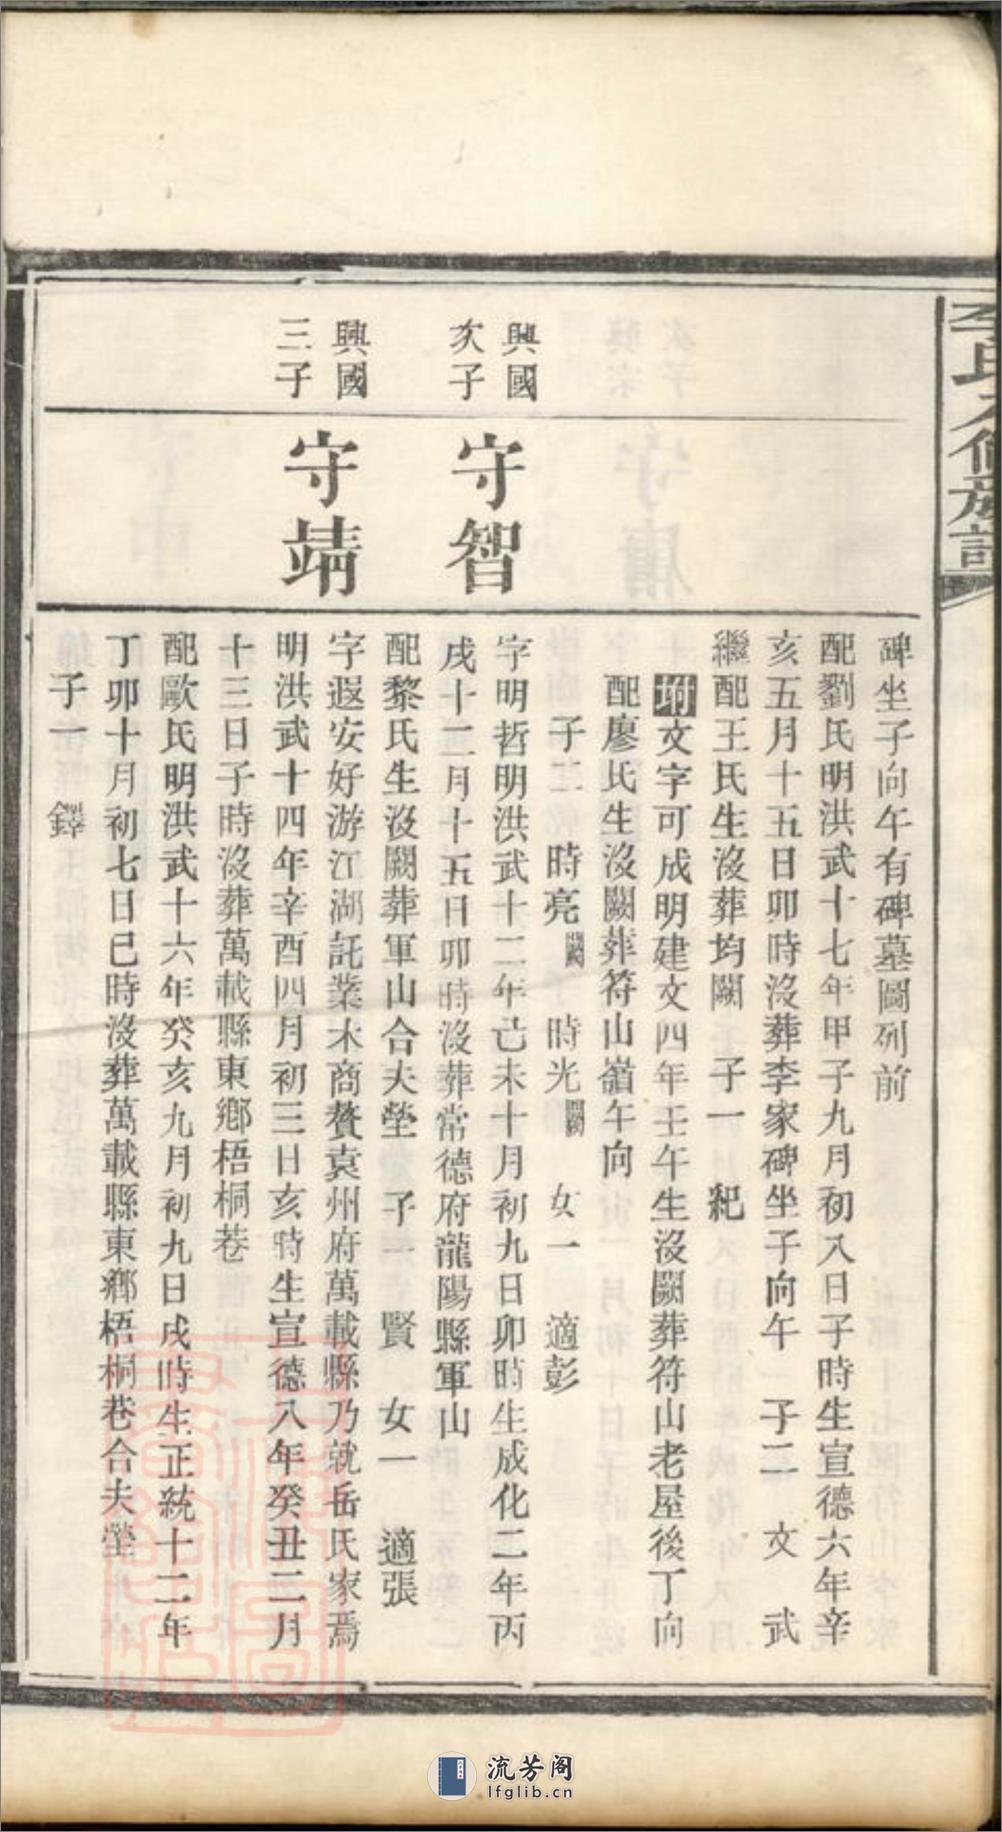 李氏六修族譜
碑坐子向午有碑墓圖列前
配劉氏明洪武十七年甲子九月初八日子時生宣德六年辛
亥五月十五日卯時沒葬李家碑坐子向午 子二 文 武
繼配王氏生沒葬均闕 子一 紀
坿文字可成明建文四年壬午生沒闕葬符山老屋後丁向
配廖氏生沒闕葬符山嶺午向
子二 時亮 時光 女一 適彭
興國
次子
守智
字明哲明洪武十二年己未十月初九日卯時生成化二年丙
戌十二月十五日卯時沒葬常德府龍陽縣軍山
配黎氏生沒闕葬軍山合夫塋 子一 賢 女一 適張
興國
三子
守靖
字遐安好游江湖託業木商贅袁州府萬載縣乃就岳氏家焉
明洪武十四年辛酉四月初三日亥時生宣德八年癸丑二月
十三日子時沒葬萬載縣東鄉梧桐巷
配歐氏明洪武十六年癸亥九月初九日戌時生正統十二年
丁卯十月初七日巳時沒葬萬載縣東鄉梧桐巷合夫塋
子一 鐸
流芳阁
lfglib.cn